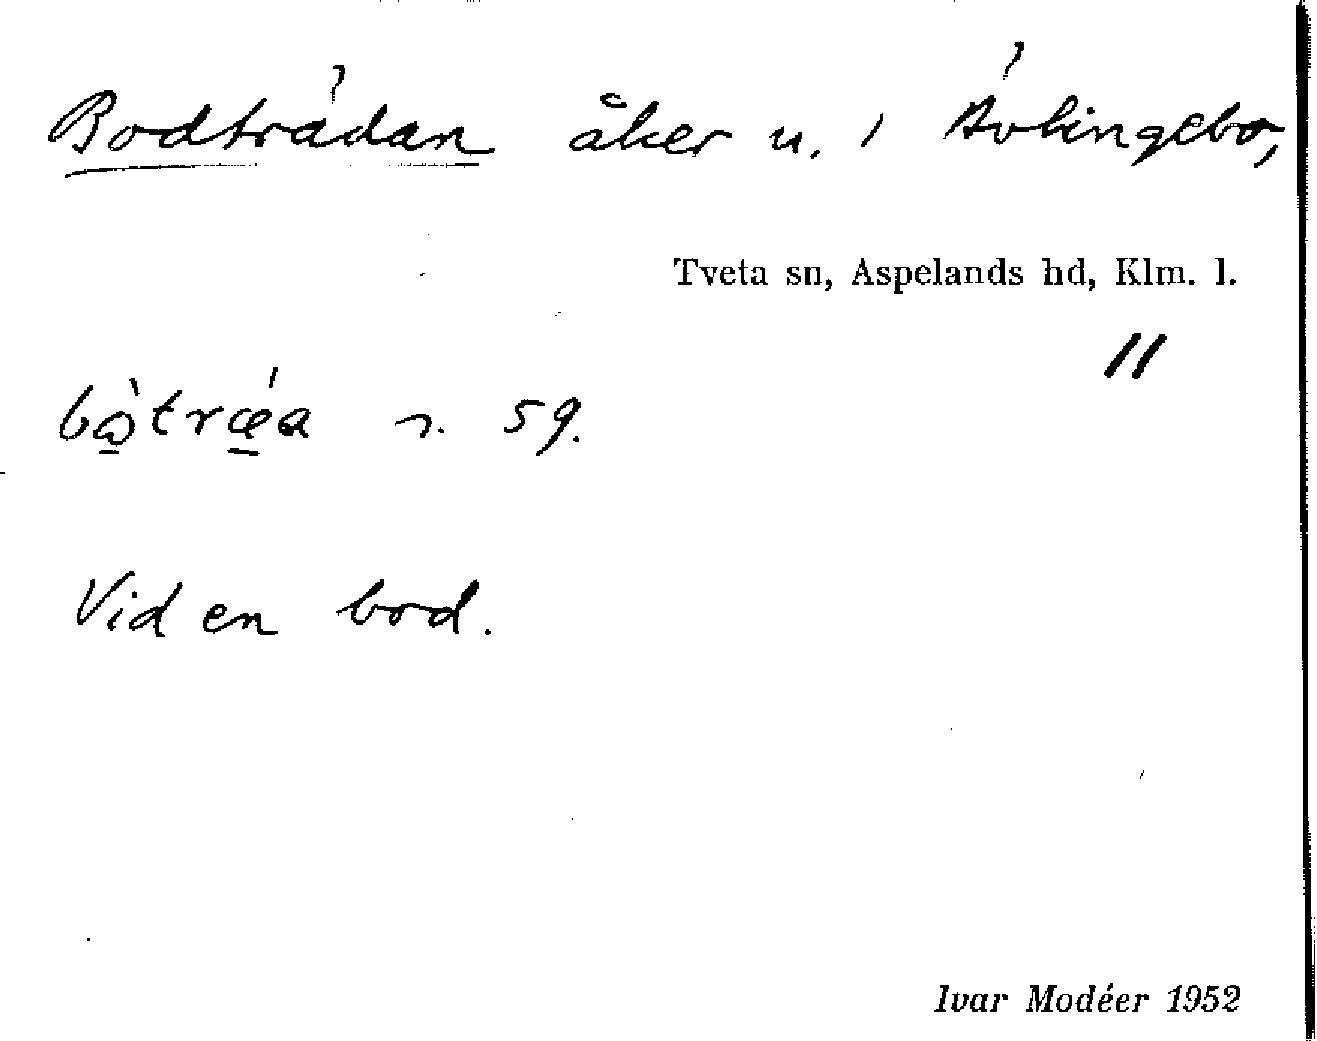 Bodträdan åker n. 1 Ävlingebo,
Tveta sn, Aspelands hd, Klm. l.
11
bòtræ̀a s. 59.
Vid en bod.
Ivar Modéer 1952